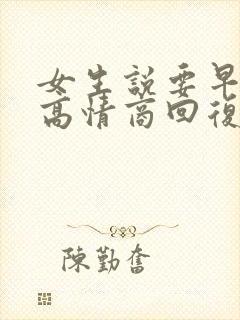 女生說要早
高情商回復
陳勤奮